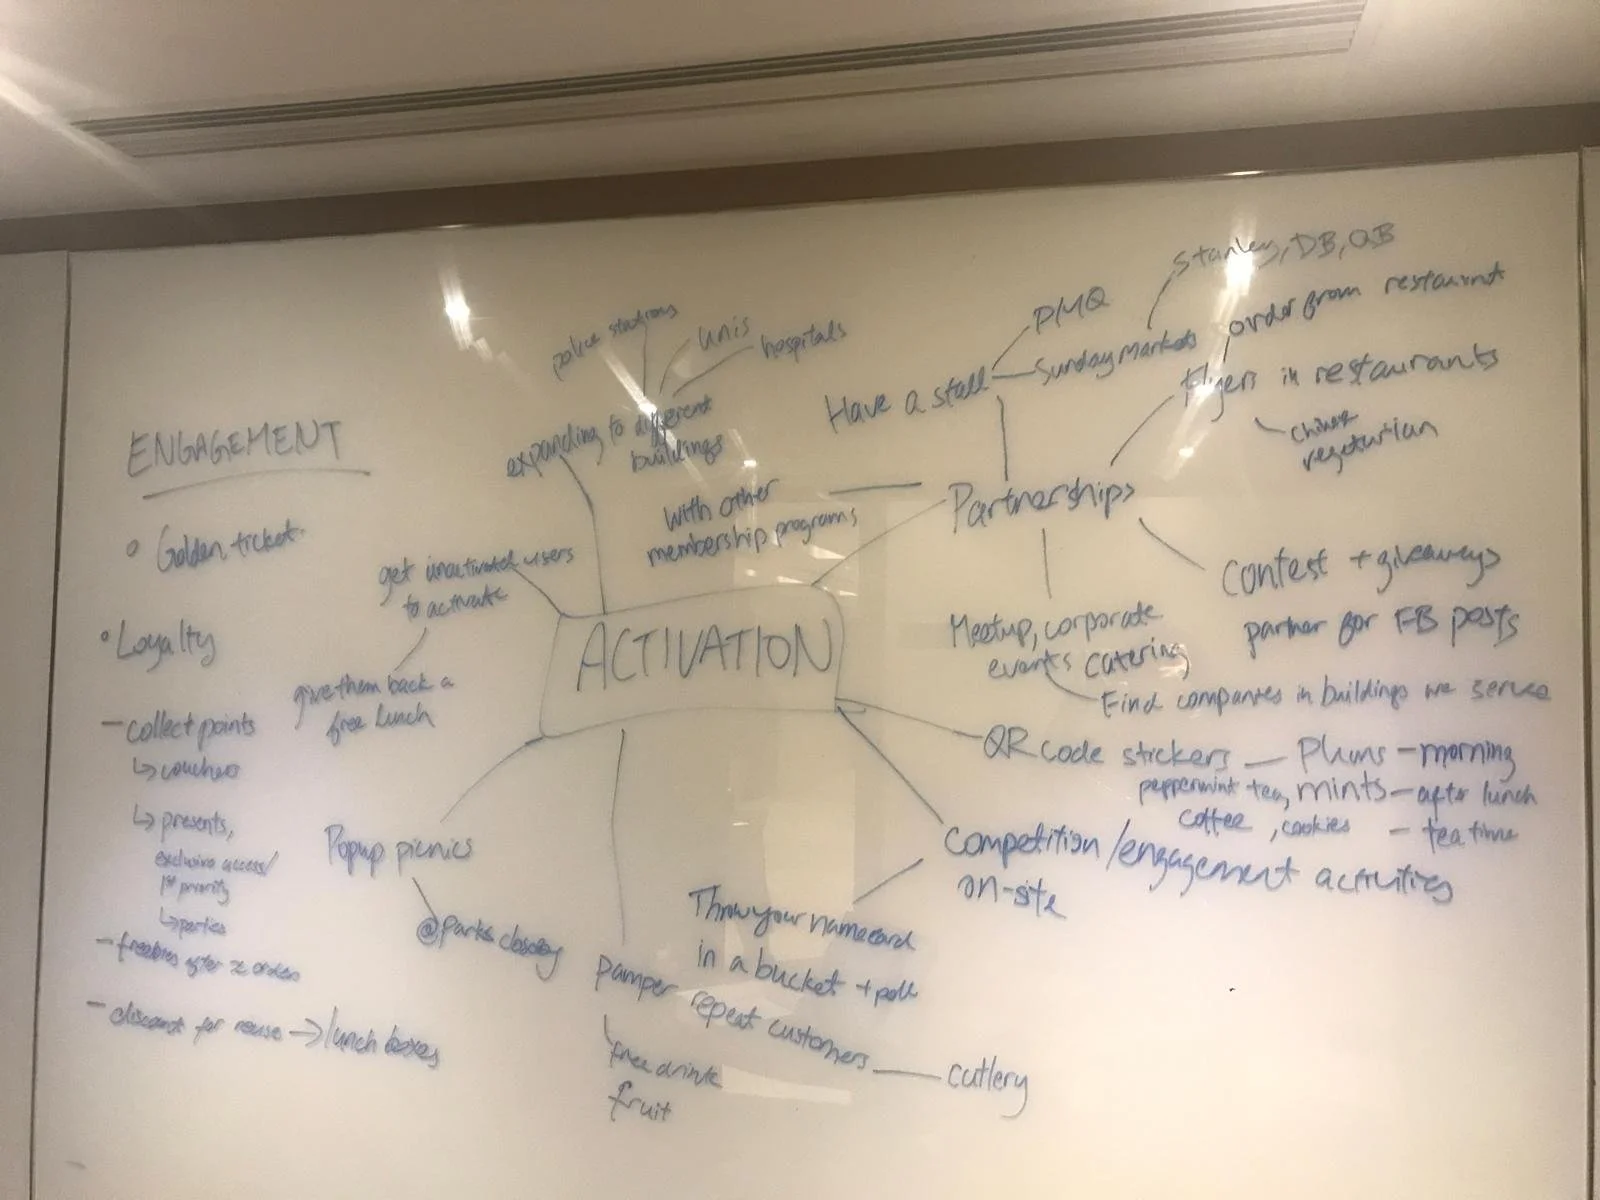 ENGAGEMENT
Golden ticket
Loyalty
- collect points
↳ vouchers
↳ presents,
exclusive access/
1st priority
↳ parties
- freebies after x orders
- discount for reuse → lunch boxes
ACTIVATION
police stations
unis
hospitals
expanding to different
buildings
get inactivated users
to activate
give them back a
free lunch
Popup picnics
@parks closeby
pamper repeat customers
free drink
fruit
cutlery
Partnerships
with other
membership programs
Have a stall
PMQ
Sunday Markets
Stanley, DB, QB
Flyers in restaurants
order from restaurant
vegetarian
Contest + giveaways
partner for FB posts
Meetup, corporate
events catering
Find companies in buildings we serve
QR code stickers - Plums - morning
peppermint tea, mints - after lunch
coffee, cookies - tea time
competition/engagement activities
on-site
Throw your namecard
in a bucket + poll